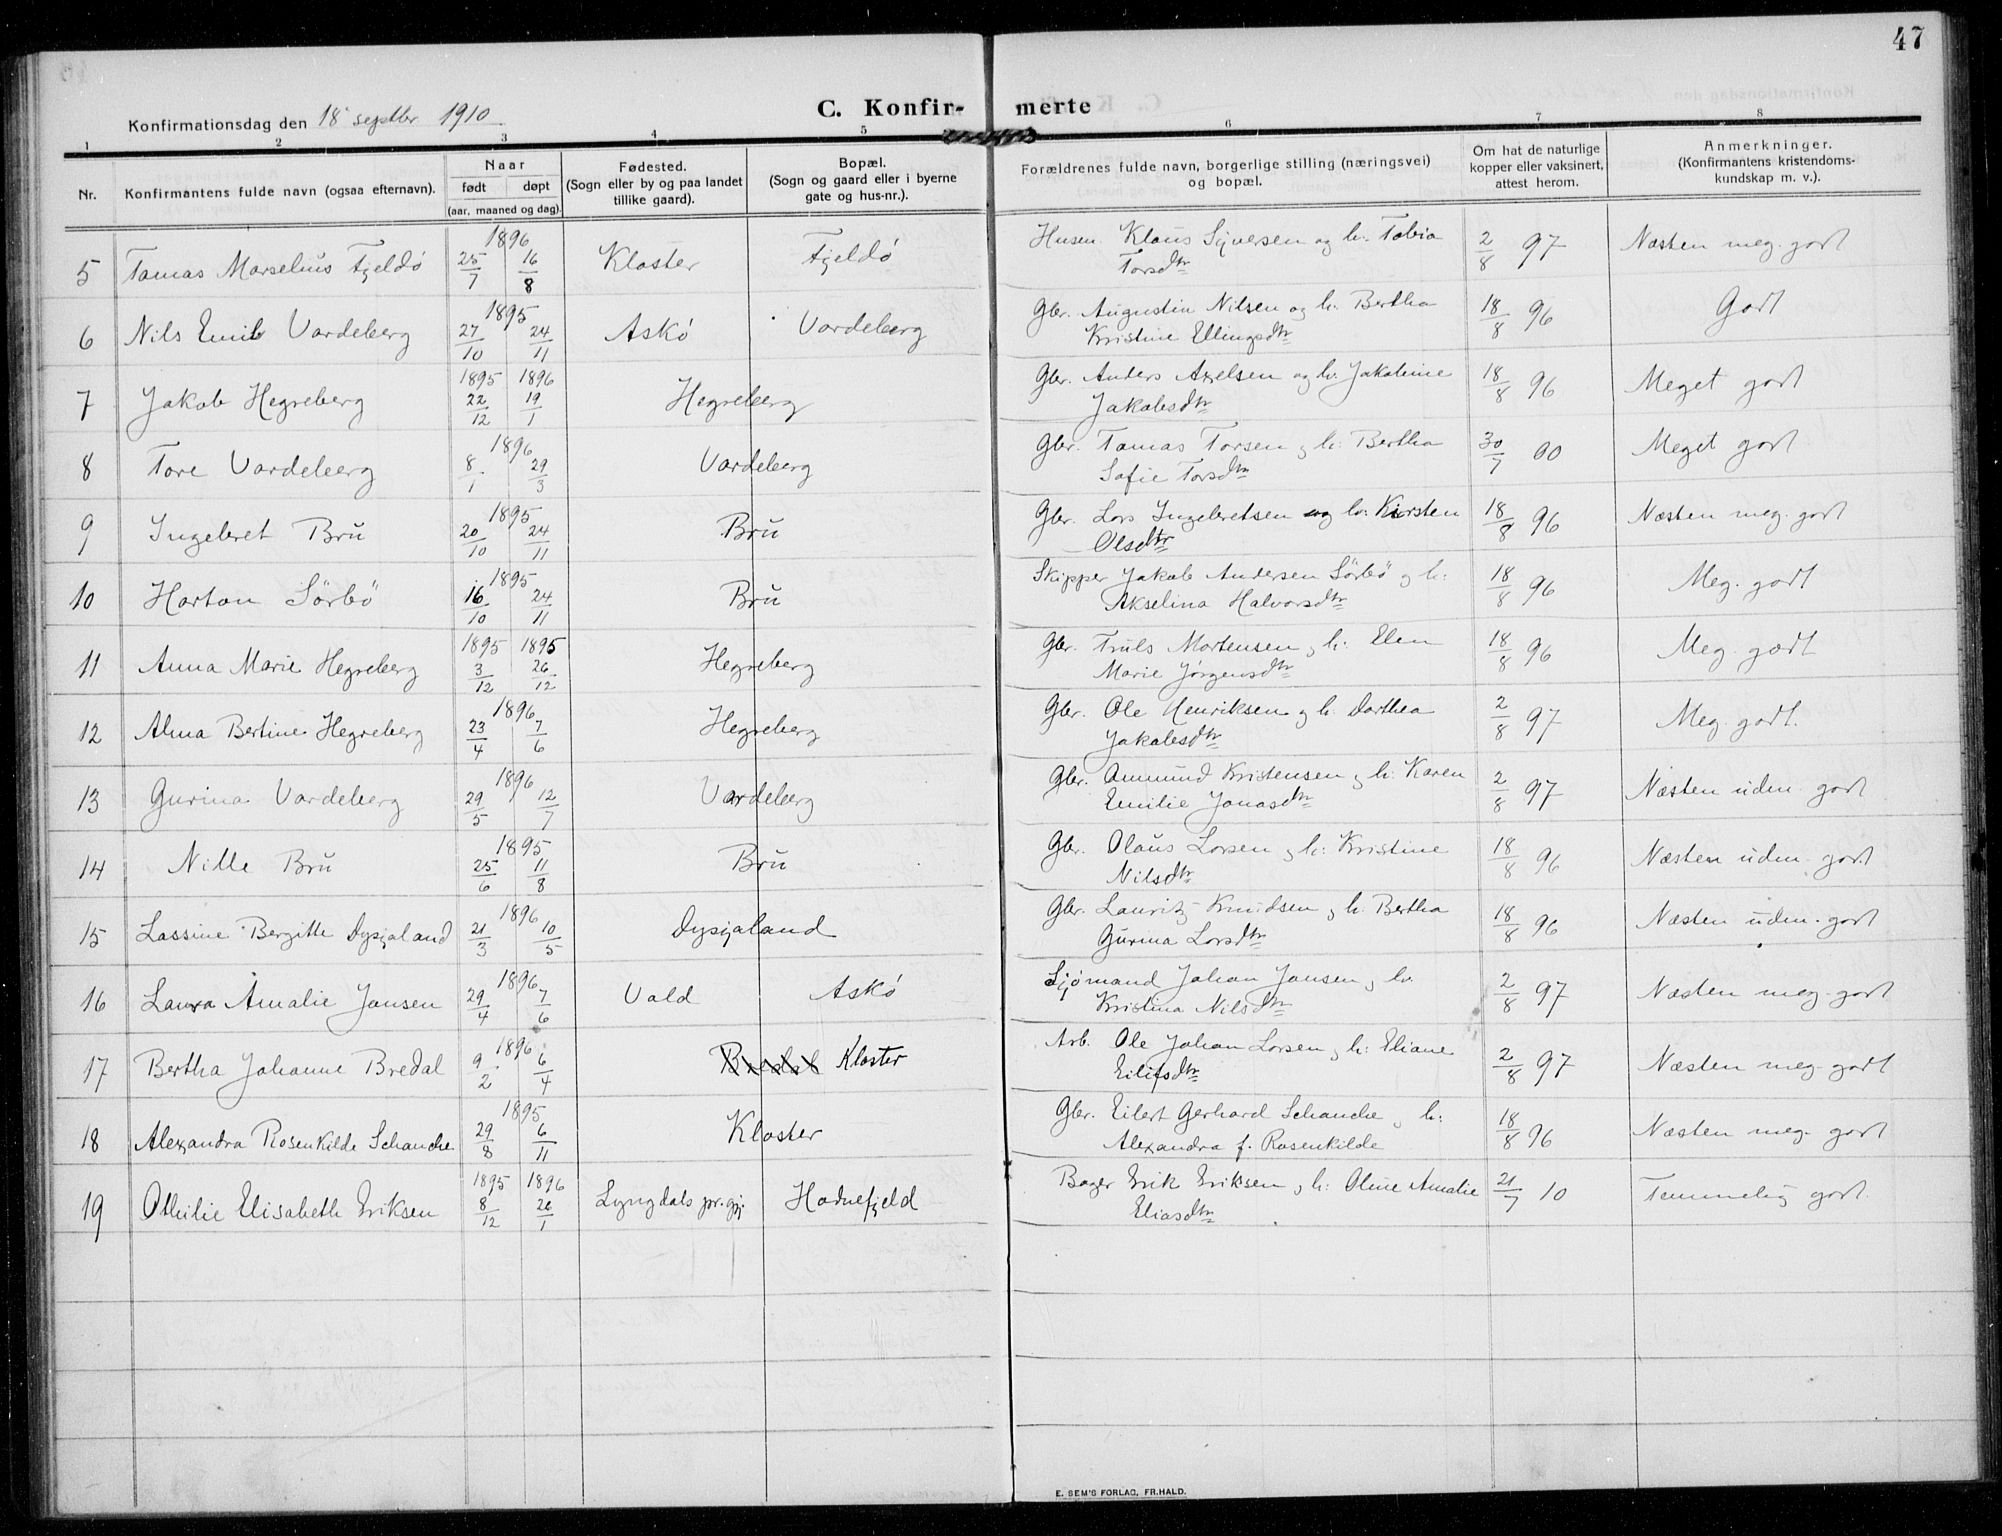 47
Konfirmationsdag den 18 septbr 1910
C. Konfir- merte
1 2 3 4 5 6 7 8
Nr. Konfirmantens fulde navn (ogsaa efternavn). Naar født døpt (aar, maaned og dag) Fødested. (Sogn eller by og paa landet tillike gaard). Bopæl. (Sogn og gaard eller i byerne gate og hus-nr.). Forældrenes fulde navn, borgerlige stilling (næringsvei) og bopæl. Om hat de naturlige kopper eller vaksinert, attest herom. Anmerkninger. (Konfirmantens kristendoms-kundskap m. v.).
5 Tomas Marselius Fjeldö 1896 25/7 16/8 Kloster Fjeldö Husm. Klaus Syversen og h. Tobia Torsdtr 2/8 97 Næsten meg. godt
6 Nils Emil Vardeberg 1895 27/10 24/11 Askö Vardeberg Gbr. Augustin Nilsen og h. Bertha Kristine Ellingsdtr 18/8 96 Godt
7 Jakob Hegreberg 1895 22/12 1896 19/1 Hegreberg Gbr. Anders Axelsen og h. Jakobine Jakobsdtr 18/8 96 Meget godt
8 Tore Vardeberg 1896 8/1 29/3 Vardeberg Gbr. Tomas Torsen og h: Bertha Sofie Torsdtr 30/7 00 Meget godt
9 Ingebret Bru 1895 20/10 24/11 Bru Gbr. Lars Ingebretsen og h: Kirsten Olsdtr 18/8 96 Næsten meg. godt
10 Harton Sörbö 1895 16/10 24/11 Bru Skipper Jakob Andersen Sörbö og h: Akselina Halvorsdtr 18/8 96 Meg. godt
11 Anna Marie Hegreberg 1895 3/12 1895 26/12 Hegreberg Gbr. Truls Mortensen og h: Elen Marie Jörgensdtr 18/8 96 Meg. godt
12 Alma Bertine Hegreberg 1896 23/4 7/6 Hegreberg Gbr. Ole Henriksen og h: Dorthea Jakobsdtr 2/8 97 Meg. godt.
13 Gurina Vardeberg 1896 29/5 12/7 Vardeberg Gbr. Ammund Kristensen og h: Karen Emilie Jonasdtr 2/8 97 Næsten uden. godt
14 Nille Bru 1895 25/6 11/8 Bru Gbr. Olaus Larsen og h: Kristine Nilsdtr 18/8 96 Næsten uden. godt
15 Lassine Bergitte Dysjaland 1896 21/3 10/5 Dysjaland Gbr. Lauritz Knudsen og h: Bertha Gurina Larsdtr 18/8 96 Næsten uden. godt
16 Laura Amalie Jansen 1896 29/4 7/6 Vold Askö Sjömand Johan Jansen og h. Kristina Nilsdtr 2/8 97 Næsten meg. godt
17 Bertha Johanne Bredal 1896 9/2 6/4 Bredal Kloster Arb. Ole Johan Larsen og h: Eliane Eilifsdtr 2/8 97 Næsten meg. godt
18 Alexandra Rosenkilde Schanche 1895 29/8 6/11 Kloster Gbr. Eilert Gerhard Schanche og h: Alexandra f. Rosenkilde 18/8 96 Næsten meg. godt
19 Othilie Elisabeth Eriksen 1895 8/12 1896 26/1 Lyngdals pr.gj. Hodnefjeld Bager Erik Eriksen og h: Oline Amalie Eliasdtr 21/7 10 Temmelig godt.
E. SEM'S FORLAG, FR.HALD.